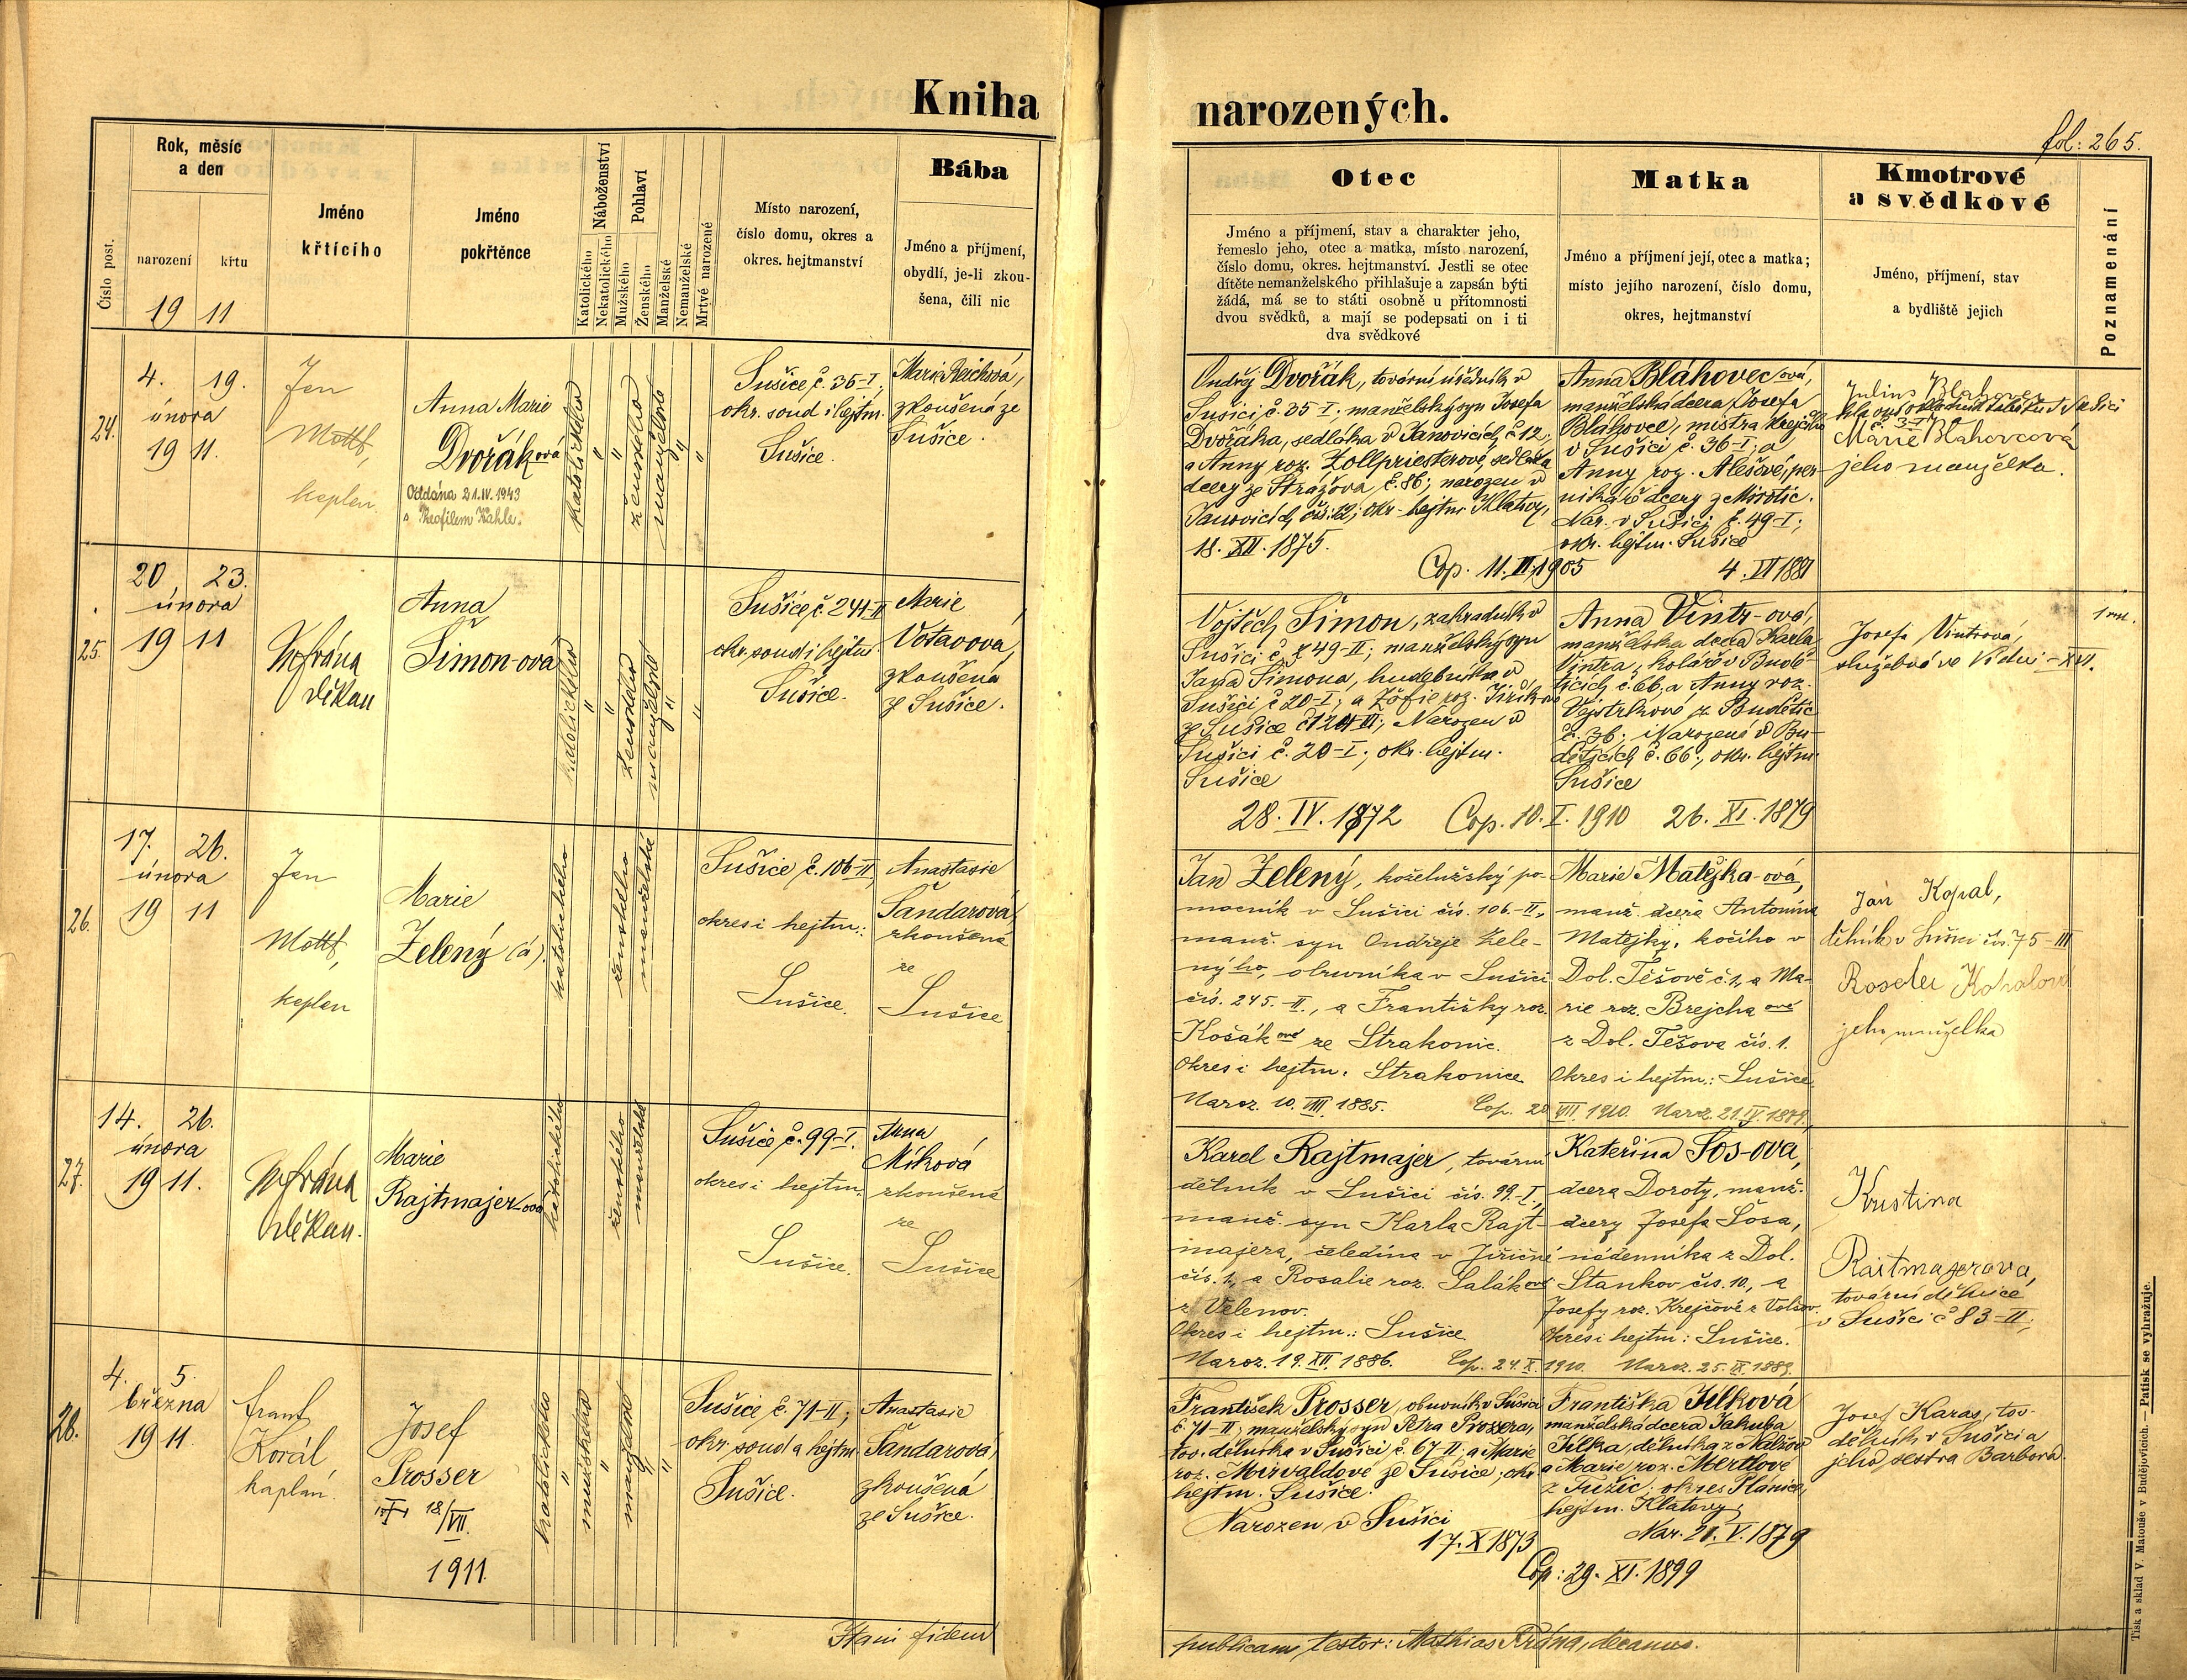 Kniha narozených.
fol: 265.
Číslo post.
Rok, měsíc
a den
narození
křtu
19 11
Jméno
křtícího
Jméno
pokřtěnce
Náboženství
Katolického
Nekatolického
Pohlaví
Mužského
Ženského
Manželské
Nemanželské
Mrtvé narozené
Místo narození,
číslo domu, okres a
okres. hejtmanství
Bába
Jméno a příjmení,
obydlí, je-li zkou-
šena, čili nic
Otec
Jméno a příjmení, stav a charakter jeho,
řemeslo jeho, otec a matka, místo narození,
číslo domu, okres. hejtmanství. Jestli se otec
dítěte nemanželského přihlašuje a zapsán býti
žádá, má se to státi osobně u přítomnosti
dvou svědků, a mají se podepsati on i ti
dva svědkové
Matka
Jméno a příjmení její, otec a matka;
místo jejího narození, číslo domu,
okres, hejtmanství
Kmotrové
a svědkové
Jméno, příjmení, stav
a bydliště jejich
Poznamenání
24.
4. 19.
února
19 11.
Jan
kaplan
Anna Marie
Dvořáková
Oddána 21.IV.1943
s Theofilem Kahle.
katolického
"
"
ženského
manželské
"
"
Sušice č. 35-I.
okr. soud i hejtm.
Sušice.
Marie Reichová,
zkoušená ze
Sušice.
Ondřej Dvořák, tovární úředník v
Sušici č. 35-I. manželský syn Josefa
Dvořáka, sedláka v Janovicích č. 12,
a Anny roz. Zollpriesterové, sedláka
dcery ze Strážova č. 86; narozen v
Janovicích čís. 12; okr. hejtm. Klatovy,
18. XII. 1875.
Cop. 11. II. 1905
Anna Bláhovec/ová,
manželská dcera Josefa
Bláhovce, mistra krejčího
v Sušici č. 36-I, a
Anny roz. Alešové, per-
nikáře dcery z Mirotic.
Nar. v Sušici č. 49-I;
okr. hejtm. Sušice
4. VI 1881
Marie Blahovcová
jeho manželka.
25.
20 23.
února
19 11
Fr. Vrána
děkan
Anna
Šimon-ová
katolického
"
"
ženského
manželské
"
"
Sušice č. 241-II
okr. soud i hejtm.
Sušice.
Marie
Votavová,
zkoušená
z Sušice.
Vojtěch Šimon, zahradník v
Sušici č. 49-II; manželský syn
Jana Šimona, hudebníka v
Sušici č 20-I, a Žofie roz. Jiříkové
ze Sušice č. 124-III; Narozen v
Sušici č. 20-I; okr. hejtm.
Sušice
28. IV. 1872
Cop. 10. I. 1910
Anna Vintr-ová,
manželská dcera Karla
Vintra, koláře v Budě-
ticích č. 66, a Anny roz.
Vejstrkové z Budětic
č. 36; Narozená v Bu-
děticích č. 66, okr. hejtm
Sušice
26. XI. 1879
Josefa Vintrová,
služebná ve Vídni-XVI.
26.
17. 26.
února
19 11
Jan
kaplan
Marie
Zelený (á).
katolického
ženského
manželské
Sušice č. 106-II,
okres i hejtm.:
Sušice.
Anastasie
Šandarová,
zkoušená
ze
Sušice
Jan Zelený, koželužský po-
mocník v Sušici čís. 106.-II.,
manž. syn Ondřeje Zele-
ného, obuvníka v Sušici
čís. 245.-II., a Františky roz.
Košákové ze Strakonic.
Okres i hejtm. Strakonice
Naroz. 10. VIII. 1885.
Cop. 20 VII. 1910.
Marie Matějka-ová,
manž. dcera Antonína
Matějky, kočího v
Dol. Těšově č. 1, a Ma-
rie roz. Brejchaové
z Dol. Těšova čís. 1.
Okres i hejtm.: Sušice
Naroz. 21. V. 1879.
Jan Kopal,
dělník v Sušici čís. 75-III
Jeho manželka
27.
14. 26.
února
19 11.
Fr. Vrána
děkan.
Marie
Rajtmajer-ová
katolického
ženského
manželské
Sušice č. 99-I.
okres i hejtm.
Sušice.
Anna
Míková
zkoušená
ze
Sušice
Karel Rajtmajer, tovární
dělník v Sušici čís. 99.-I.,
manž. syn Karla Rajt-
majera, čeledína v Jiřičné
čís. 1, a Rosalie roz. Salákové
z Velenov.
Okres i hejtm.: Sušice
Naroz. 19. XII. 1886.
Cop. 24. X. 1910.
Kateřina Šos-ová,
dcera Doroty, manž.
dcery Josefa Šosa,
nádenníka z Dol.
Stankov čís. 10, a
Josefy roz. Krejčové z Volšov.
Okres i hejtm: Sušice.
Naroz. 25. IX. 1889.
Kristina
Raitmajerová,
tovární dělnice
v Sušici č 83-II,
28.
4. 5.
března
19 11.
Frant.
Korál
kaplan.
Josef
Prosser
18/VII.
1911.
katolického
"
mužského
"
manželské
"
"
Sušice č. 71-II;
okr. soud a hejtm
Sušice.
Anastasie
Šandarová,
zkoušená
ze Sušice.
František Prosser, obuvník v Sušici
č 71-II; manželský syn Petra Prossera,
tov. dělníka v Sušici č. 67-II, a Marie
roz. Mirvaldové ze Sušice; okr.
hejtm. Sušice.
Narozen v Sušici
17. X 1873
Cop: 29. XI. 1899
Františka Jílková
manželská dcera Jakuba
Jílka, dělníka z Nalžov
a Marie, roz. Mertlové
z Tužic; okres Plánice;
hejtm. Klatovy;
Nar. 21. V. 1879
Josef Karas, tov.
dělník v Sušici a
jeho sestra Barbora.
fidem
publicam testor: Mathias Vrána, decanus.
Tisk a sklad V. Matouše v Budějovicích. — Patisk se vyhražuje.